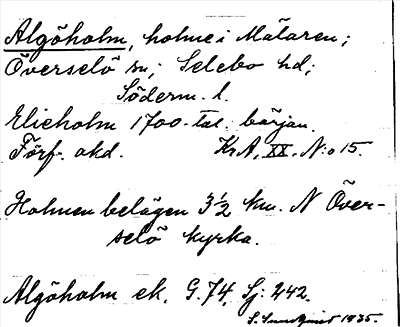 Algöholm, holme i Mälaren;
Överselö sn; Selebo hd;
Söderm. l.
Elieholm 1700-tal. början.
Förf. okd. Kr.A. XX. N:o 15.
Holmen belägen 3 1/2 km. N Över-
selö kyrka.
Algöholm ek. G. 74, Sj: 242.
S. 1935.